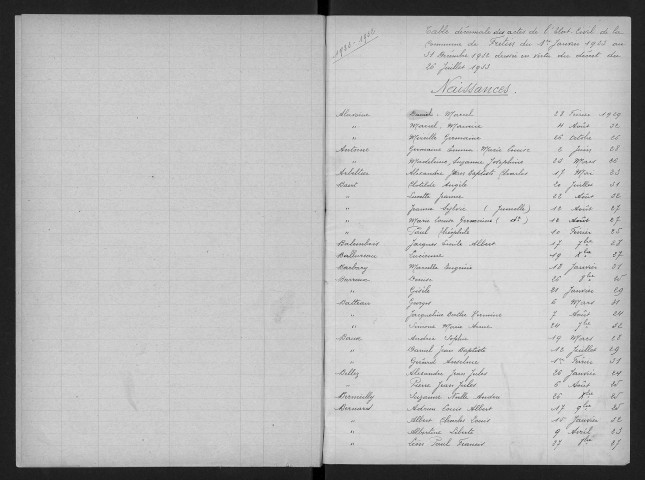 1923-1932
Table décennale des actes de l'Etat Civil de la
commune de du 1er Janvier 1923 au
31 Décembre 1932 dressée en vertu du décret du
26 Juillet 1933
Naissances.
Marcel 28 Février 1929
" Marcel, Maurice 4 Août 32
" Mireille Germaine 26 Octobre 26
Antoine Germaine Marie Louise 2 Juin 28
" Madeleine, Suzanne Joséphine 20 Mars 26
Alexandre Jean Baptiste Charles 17 Mai 23
Clotilde Angèle 20 Juillet 31
" Lucette Jeanne 22 Août 32
" Jeanne Sylvie (Jumelle) 12 Août 27
" Marie Louise Germaine (do) 12 Août 27
" Paul Théophile 10 Février 25
Jacques Emile Albert 17 7bre 28
Lucienne 19 Xbre 27
Barbary Marcelle Eugénie 18 Janvier 31
Denise 26 8bre 25
" Gisèle 21 Janvier 29
Georges 6 Mars 31
" Jacqueline Berthe 7 Août 24
" Simone Marie Anne 24 7bre 32
Andrée Sophie 19 Mars 28
" Daniel Jean Baptiste 12 Juillet 29
" Gérard Anselme 1er Février 31
Alexandre Jean Jules 26 Janvier 24
" Pierre Jean Jules 6 Août 25
Suzanne 26 Xbre 25
Bernard Louis Albert 17 9bre 25
" Albert Charles Louis 10 Janvier 32
" Albertine 9 Avril 23
" Léon Paul Francis 27